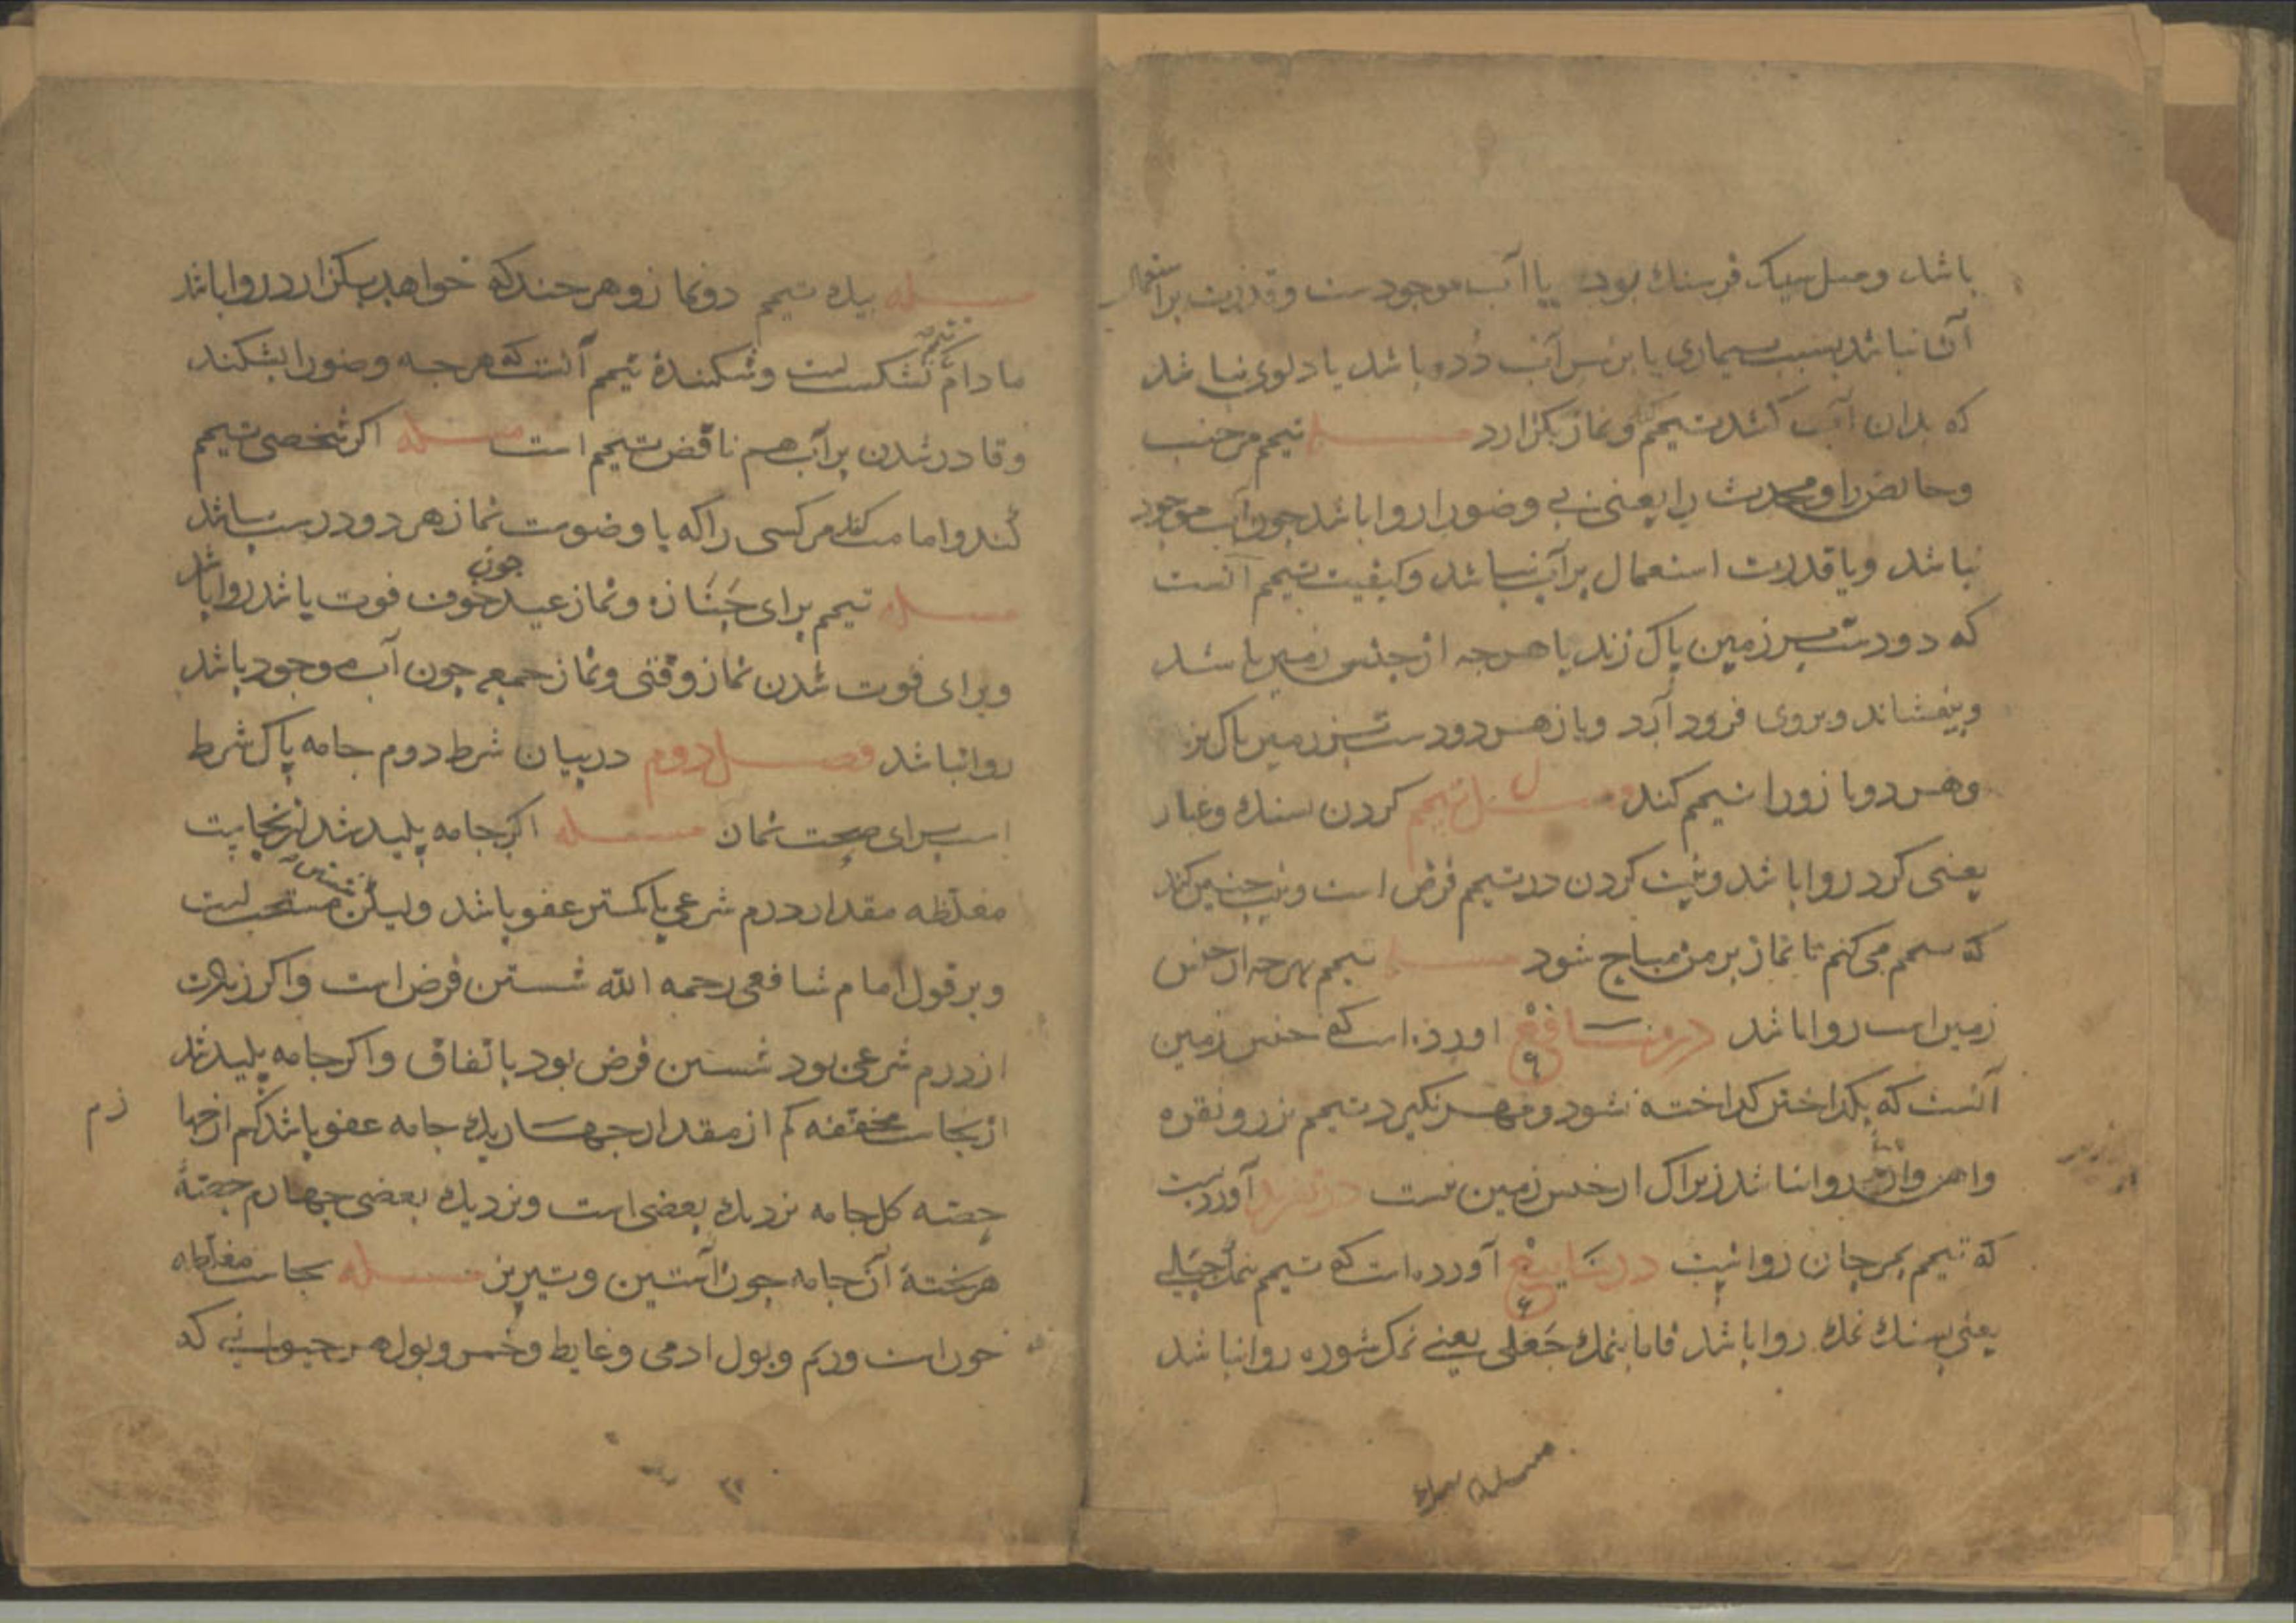 باشد و میل سیک فرسنك بود یا آب موجودست و قدرت بر استعمال
آن نباشد بسبب بیماری یا بر سر آب دده باشد یا دلوی نباشد
که بدان آب کشد تیمم کند و نماز بکزارد مسـٔله تیمم مر جنب
و حائض را و محدث را یعنی بی وضو را روا باشد جون آب موجود
نباشد و یا قدرت استعمال بر آب نباشد و کیفیت تیمم آنست
که دو دست بر زمین پاک زند یا هرجه از جنس زمین باشد
و بیفشاند و بروی فرود آرد و باز هر دو دست بر زمین پاک بزند
و هر دو بازو را تیمم کند تیمم کردن سنك و غبار
یعنی کرد روا باشد و نیت کردن در تیمم فرض است و نیت جنین کند
که تیمم می کنم تا نماز بر من مباح شود مسـٔله تیمم بهرجه از جنس
زمین است روا باشد در منافع اورده است که جنس زمین
آنست که بکداختن کداخته نشود و مهر نکیرد تیمم بزر و نقره
و اهن و ارزیز روا نباشد زیراک از جنس زمین نیست در آوردست
که تیمم بمرجان روا نیست در ینابیع آورده است که تیمم بنمك جبلی
یعنی بسنك نمك روا باشد فاما بنمك جعلی یعنی نمک شوره روا نباشد
مسـٔله بیك
مسـٔله بیك تیمم دو نماز و هر جند که خواهد بکزارد روا باشد
ما دام تیمم نشکست است و شکنندهٔ تیمم آنست که هر جه وضو را بشکند
و قادر شدن بر آب هم ناقض تیمم است مسـٔله اکر شخصی تیمم
کند و امامت کند مر کسی را که با وضوست نماز هر دو درست باشد
جون
مسـٔله تیمم برای جنازه و نماز عید خوف فوت باشد روا باشد
و برای فوت شدن نماز وقتی و نماز جمعه جون آب موجود باشد
روا نباشد فصل دوم در بیان شرط دوم جامه پاک شرط
است برای صحت نماز مسـٔله اکر جامه پلید شد از نجاست
مغلظه مقدار درم شرعی یا کمتر عفو باشد ولیکن شستن مستحب است
و بر قول امام شافعی رحمه الله شستن فرض است و اکر زیادت
از درم شرعی بود شستن فرض بود باتفاق و اکر جامه پلید شد
از نجاست مخففه کم از مقدار جهار یك جامه عفو باشد کم از جهارم
حصّه کل جامه نزدیك بعضی است و نزدیك بعضی جهارم حصّهٔ
هر تختهٔ آن جامه جون آستین و تیریز مسـٔله نجاست مغلظه
خون است و ریم و بول ادمی و غایط و خمر و بول هر حیوانی که